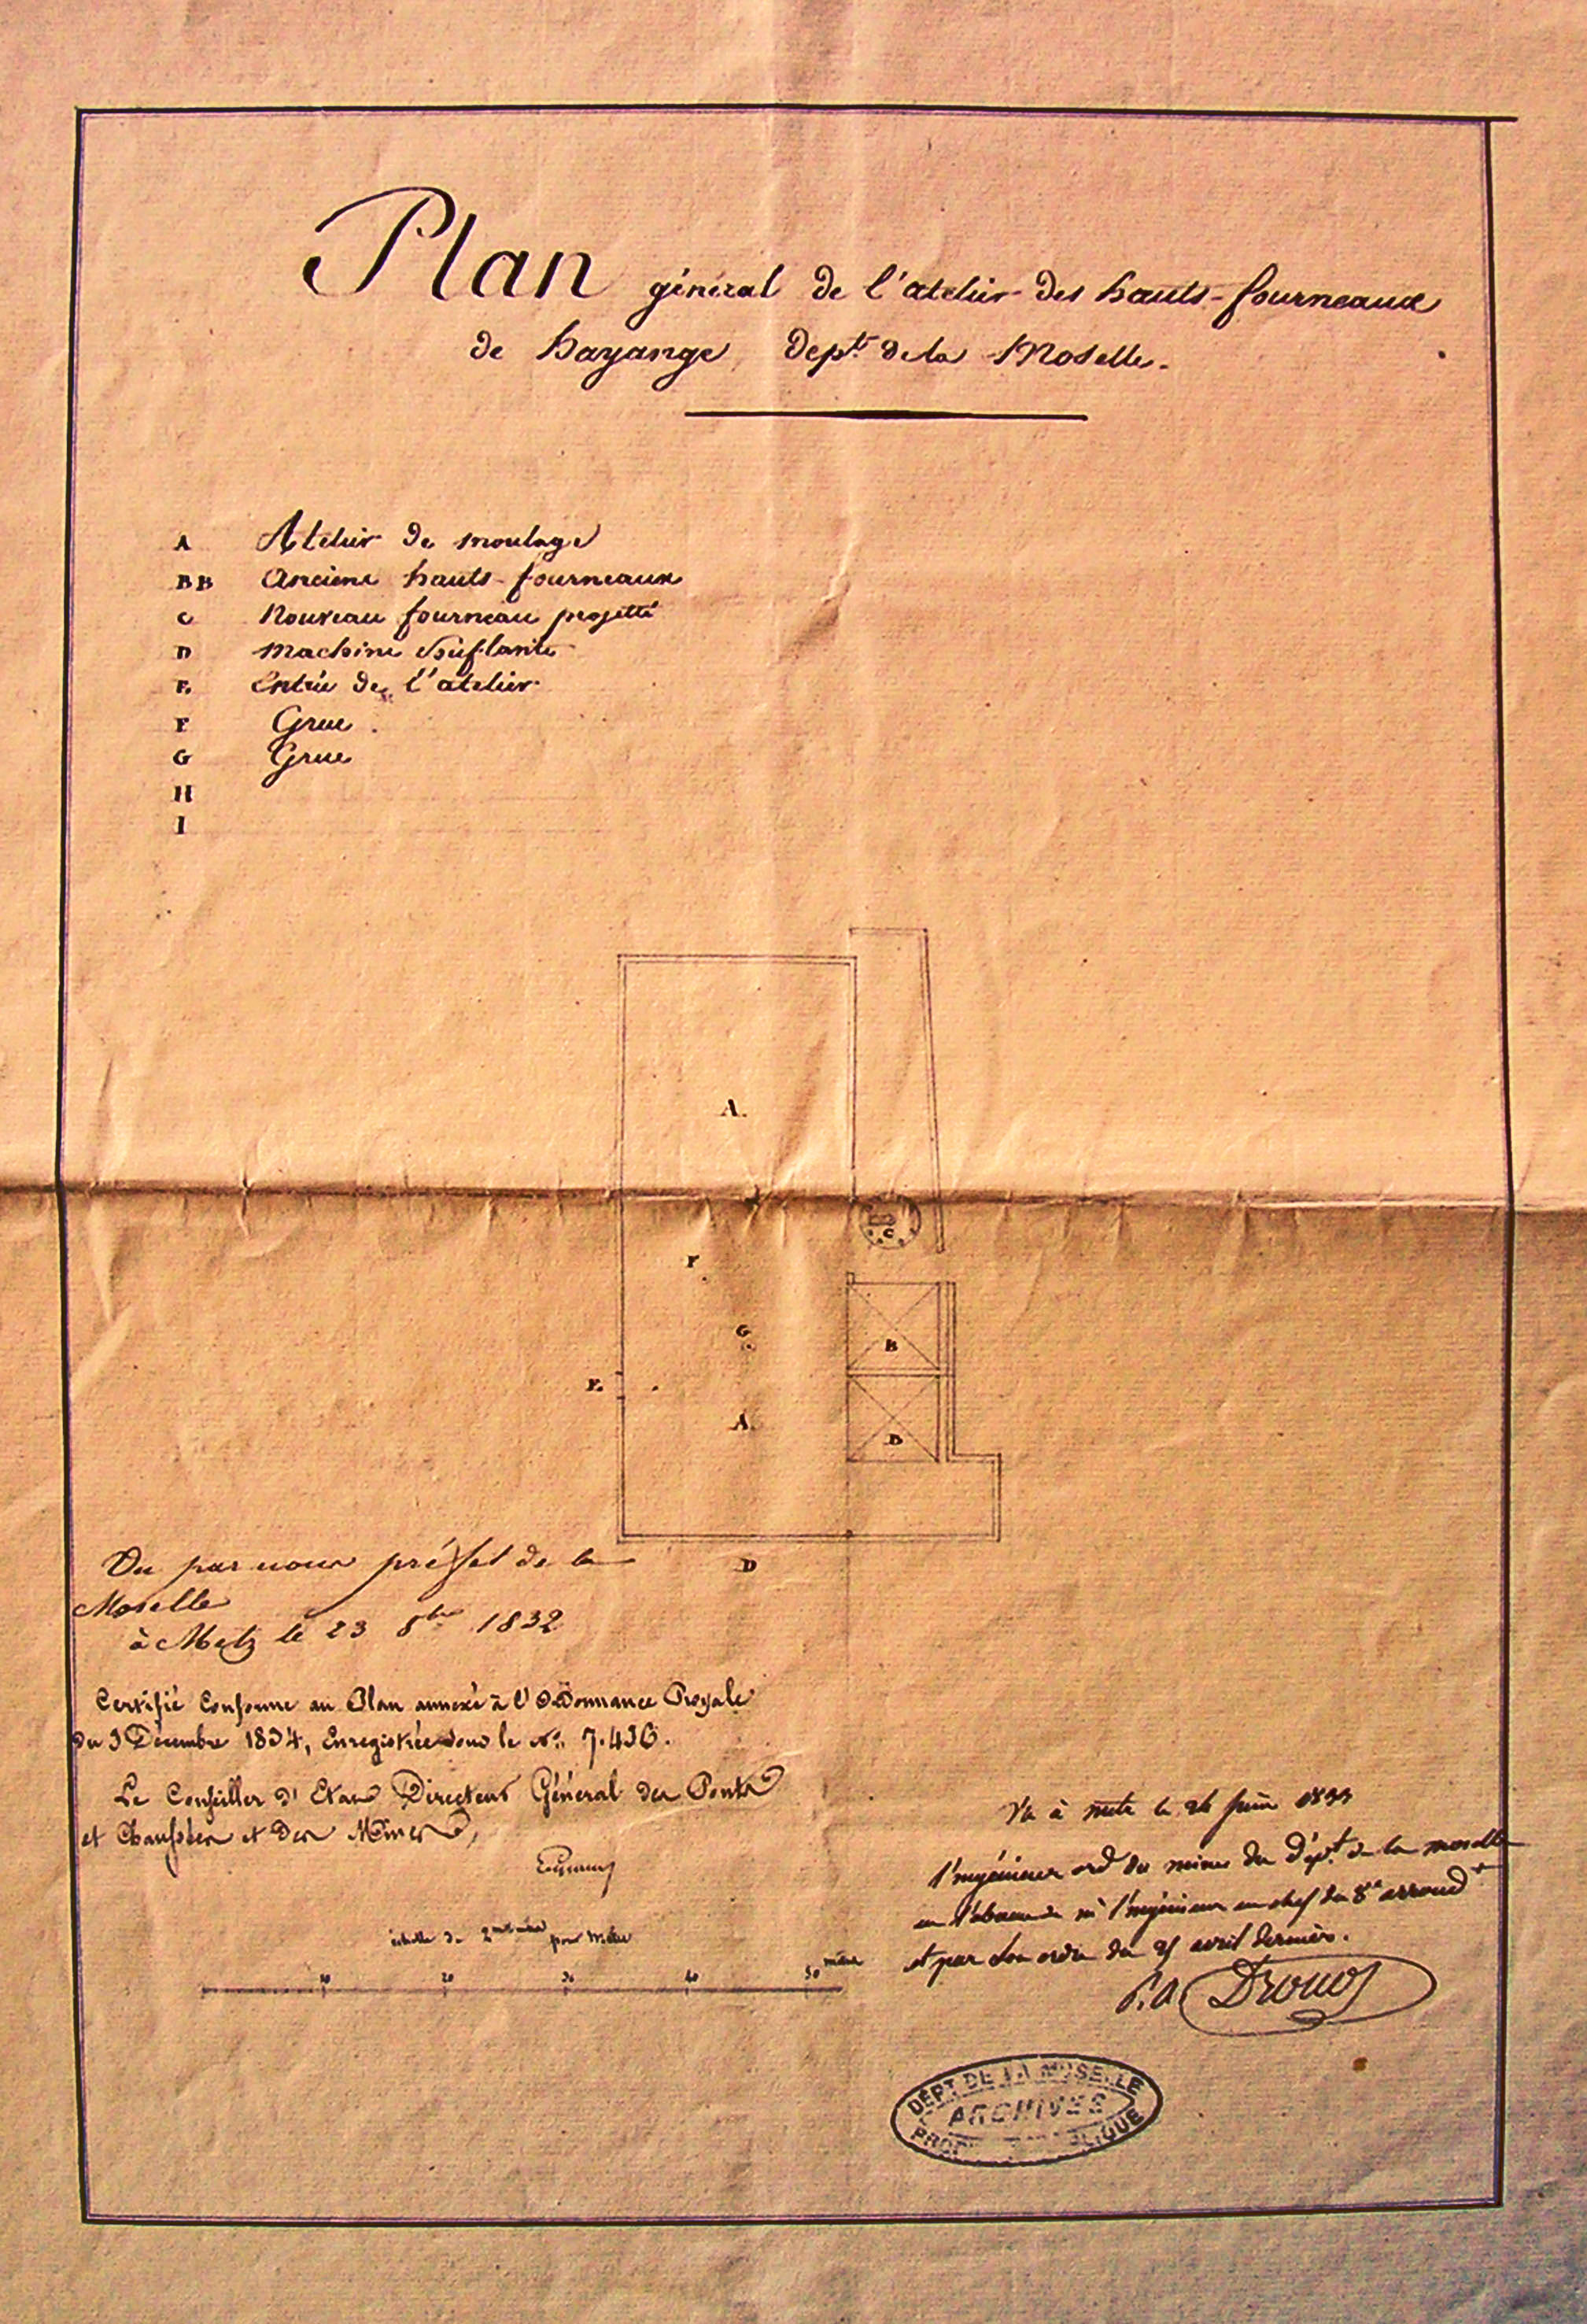 Plan général de l'atelier des hauts-fourneaux
de hayange dept. de la Moselle.
A Atelier de moulage
BB Anciens hauts-fourneaux
C Nouveau fourneau projetté
D Machine Souflante
E. Entrée de l'atelier
F Grue.
G Grue
H
I
A.
C
F
G
B
E.
A.
B
D
Vu par nous préfet de la
Moselle
à Metz le 23 8bre 1832
Certifié Conforme au Plan annexé à l'Ordonnance Royale
du 3 Décembre 1834, Enregistrée sous le No. 7.436.
Le Conseiller d'Etat Directeur Général des Ponts
et Chaussées et des Mines,
échelle de 2 pour Mètre
10 20 30 40 50 mètres
Vu à metz le 26 juin 1833
l'ingénieur ord des mines du dépt. de la moselle
en l'absence de l'ingénieur en chef du 8e arrond
et par son ordre du 25 avril dernier.
Drouot
DÉPT DE LA MOSELLE
ARCHIVES